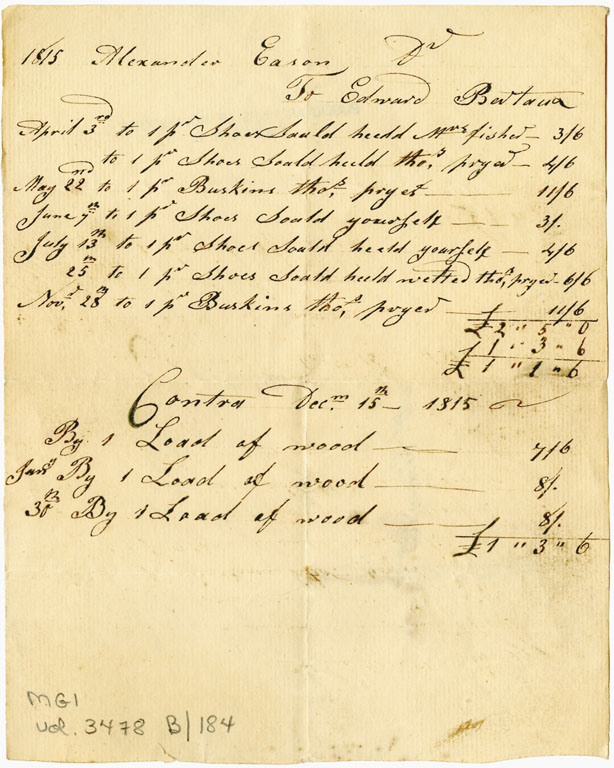 1815 Alexander Eason Dr
To Edward Bartaua
April 3rd to 1 pr Shoes Soald heeld Mrs fisher — 3/6
to 1 pr Shoes Soald heeld thos, pryer — 4/6
May 22nd to 1 pr Buskins thos, pryer — 11/6
June 7th to 1 pr Shoes Soald yourself — 3/.
July 13th to 1 pr Shoes Soald heeld yourself — 4/6
25th to 1 pr Shoes Soald heeld welted thos, pryer - 6/6
Novr, 28th to 1 pr Buskins thos, pryer — 11/6
£2 " 5 " 0
£1 " 3 " 6
£1 " 1 " 6
Contra Decm 15th — 1815
By 1 Load of wood — 7/6
Jany By 1 Load of wood — 8/.
30th By 1 Load of wood — 8/.
£1 " 3 " 6
MG1
vol. 3478 B/184